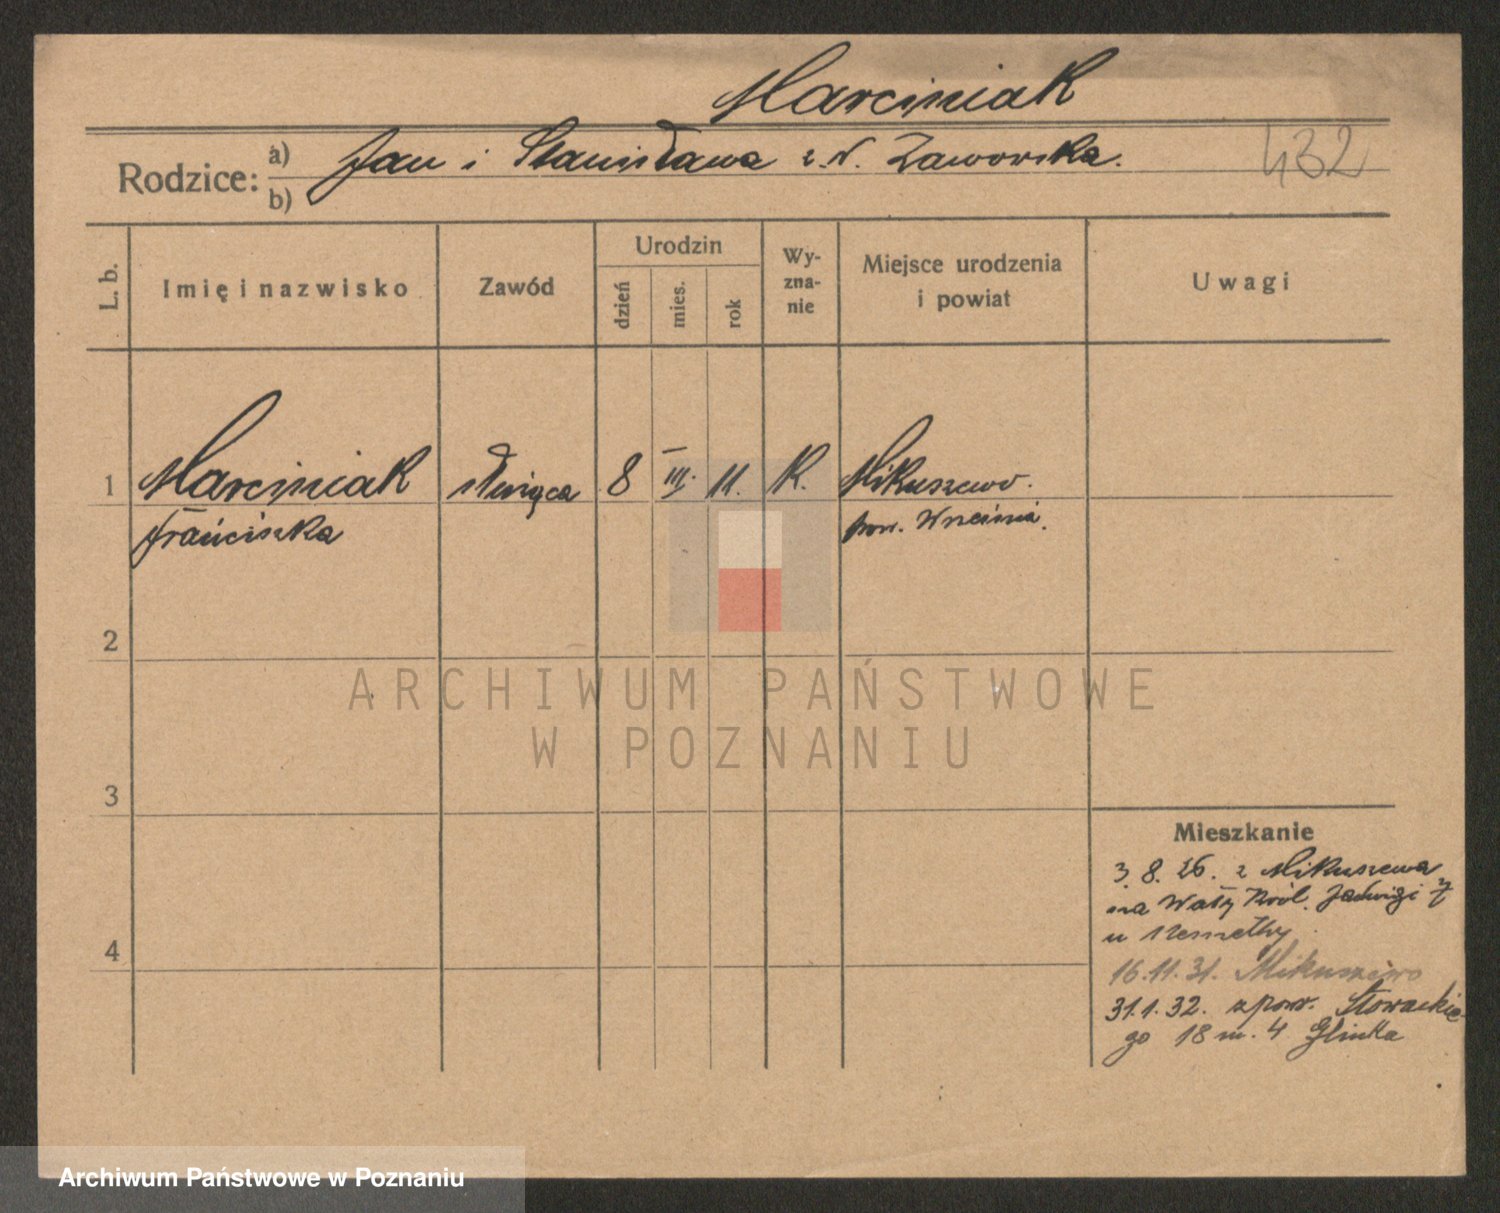 Marciniak
432
Rodzice: a) Jan i Stanisława z d. Zaworska.
b)
L. b.
Imię i nazwisko
Zawód
Urodzin
dzień
mies.
rok
Wy-
zna-
nie
Miejsce urodzenia
i powiat
Uwagi
1 Marciniak służąca 8 III. 11. K. Mikuszewo.
Franciszka pow. Września.
2
3
4
Mieszkanie
3.8.26. z Mikuszewa
na Wały Król. Jadwigi
u
16.11.31. Mikuszewo
31.1.32. z pow. Słowackie-
go 18 m. 4 Glinka
ARCHIWUM PAŃSTWOWE
W POZNANIU
Archiwum Państwowe w Poznaniu